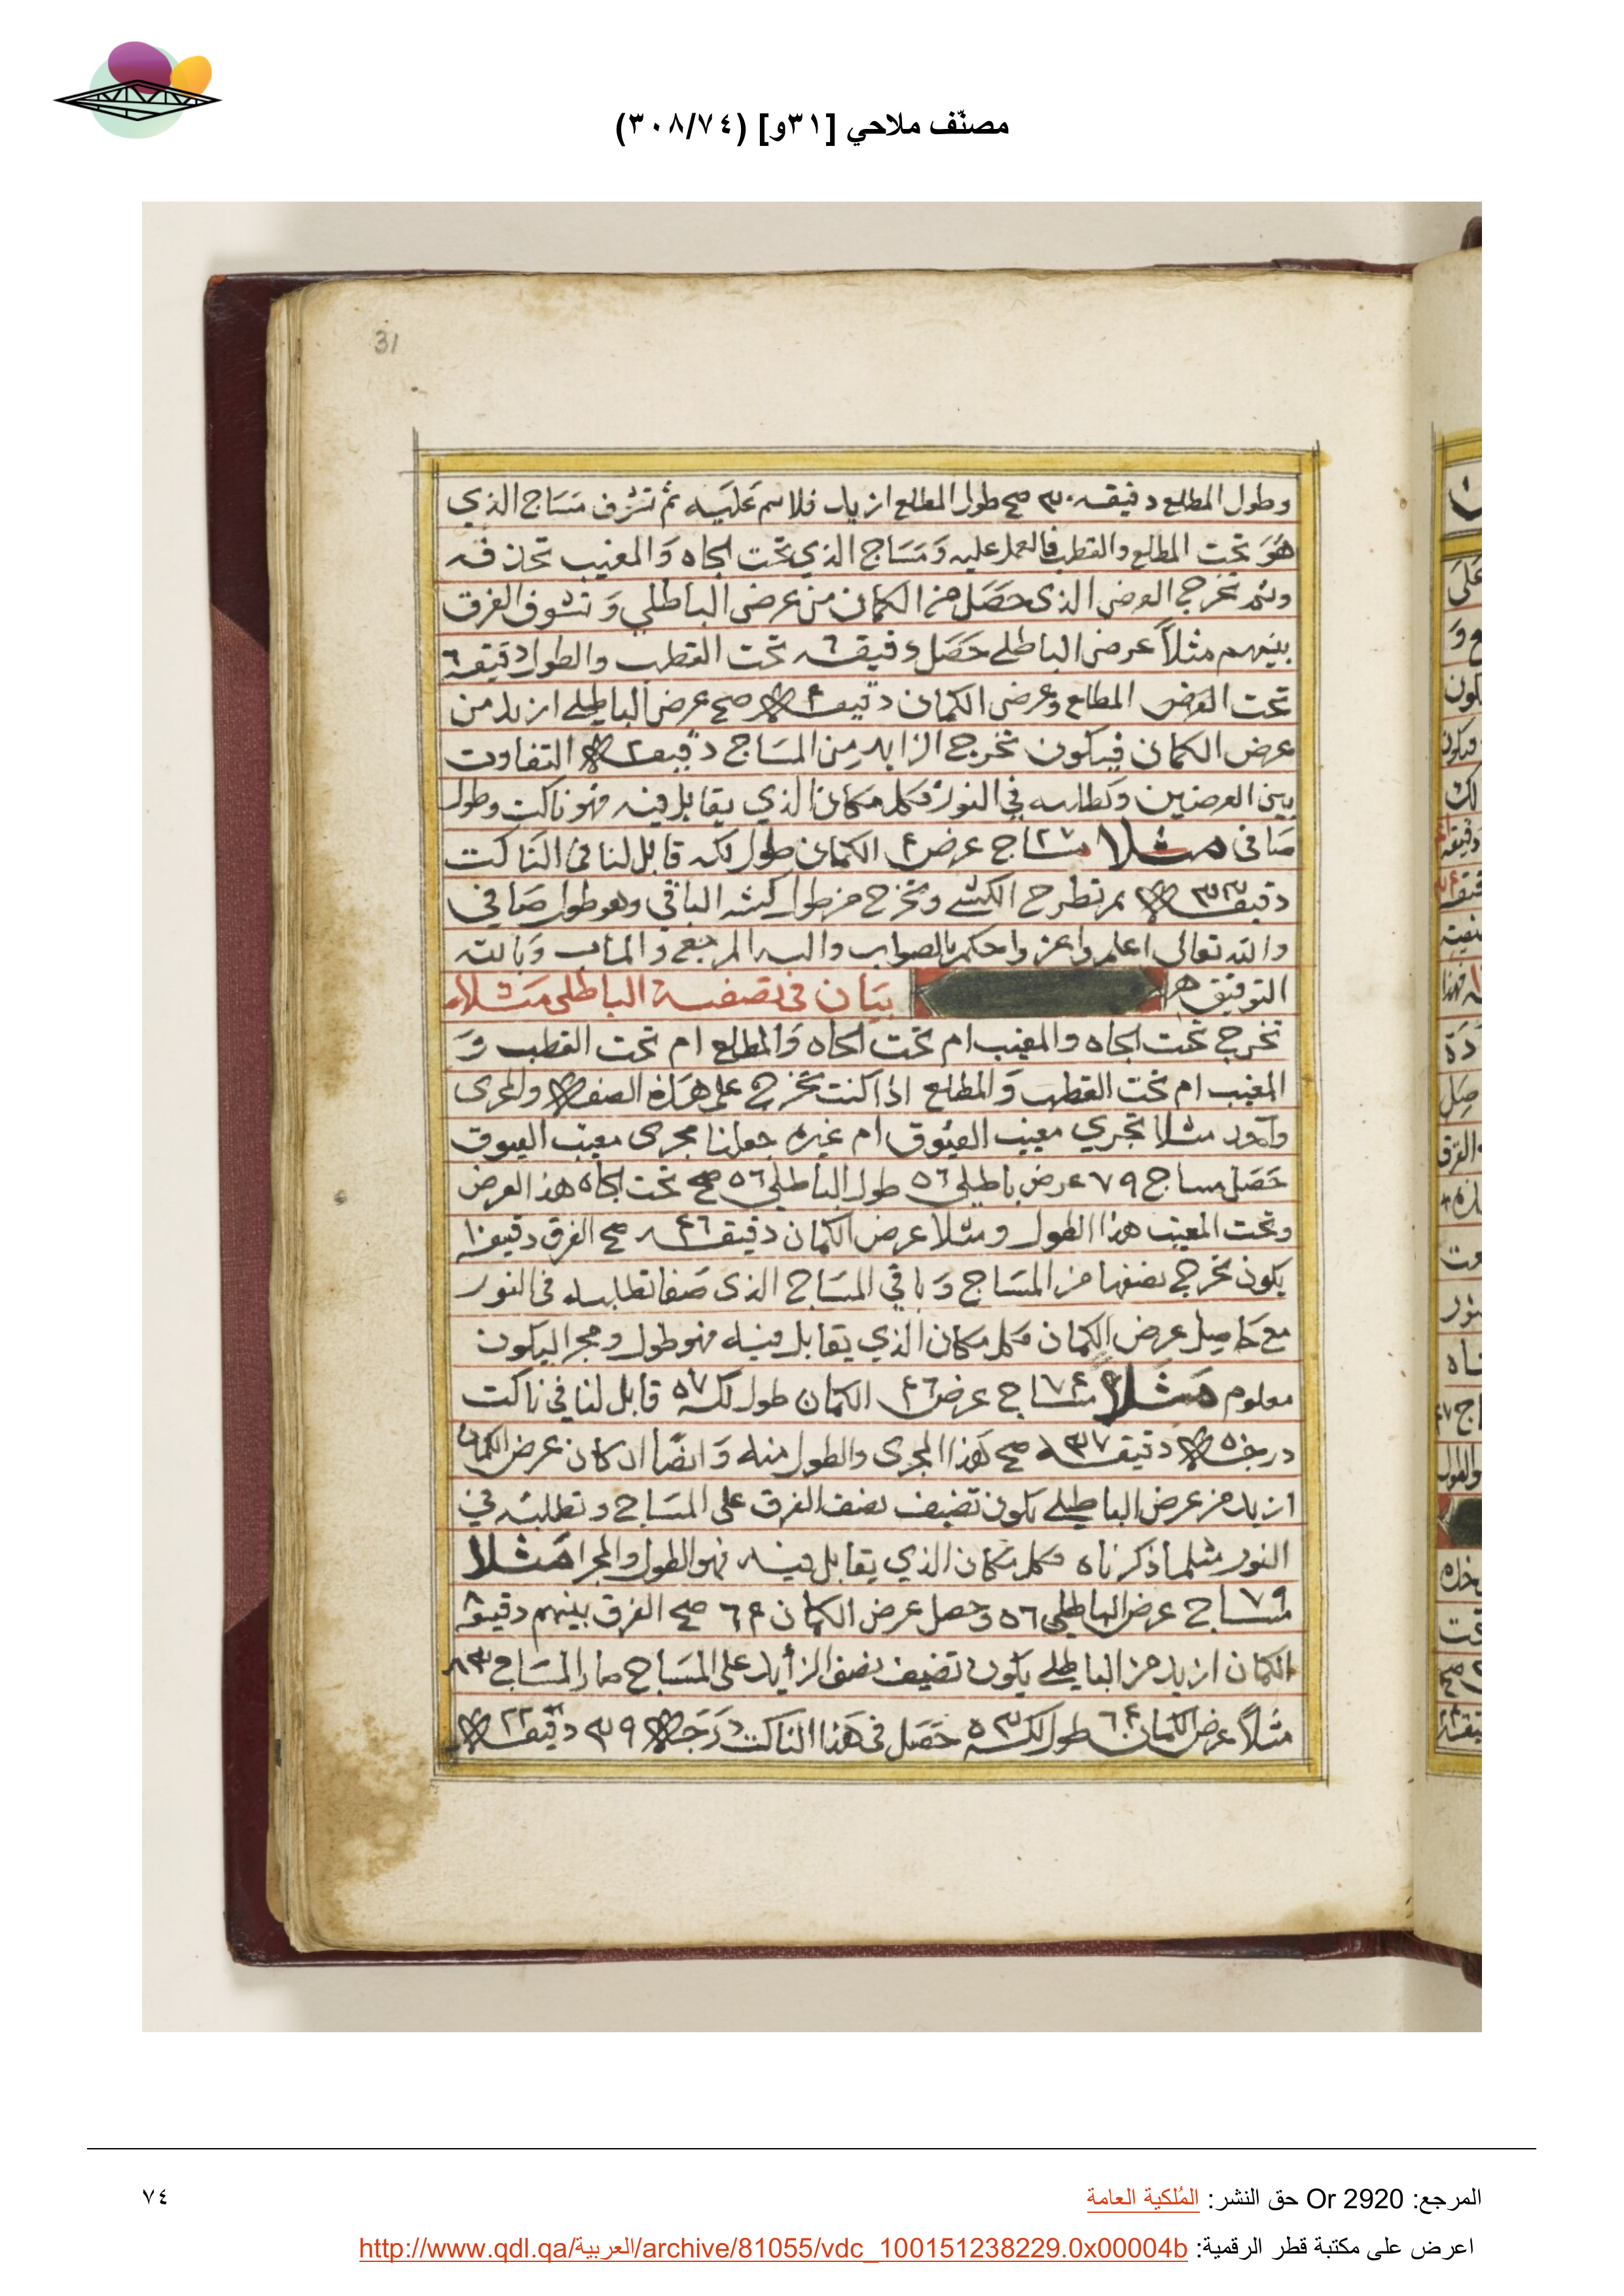 مصنّف ملاحي [٣١و] (٣٠٨/٧٤)
31
وطول المطلع دقيقه ٣٠ صح طول المطلع ازيد فلاسم عليه ثم تشرف مساج الذي
هو تحت المطلع والقطب فالعمل عليه ومساج الذي تحت الجاه والمغيب تحذفه
وثم تخرج العرض الذي حصل من الكمان من عرض الباطلي وتشوف الفرق
بينهم مثلاً عرض الباطلي حصل دقيقه ٦ تحت القطب والطول دقيقه ٦
تحت المطلع وعرض الكمان دقيقه ٤ صح عرض الباطلي ازيد من
عرض الكمان فيكون تخرج الزايد من المساج دقيقه ٢ التفاوت
بين العرضين وتطلبه في النور فكل مكان الذي يقابل فيه فهو ناكت وطول
صافي مثلا مساج ٢٧ عرض ٤ الكمان طول لكه قابل لنا في الناكت
دقيقه ٣٣ ثم تطرح الكشي وتخرج من طول كشه الباقي وهو طول صافي
والله تعالى اعلم واعز واحكم بالصواب واليه المرجع والماب وبالله
التوفيق بيان في تصفية الباطلي مثلا
تخرج تحت الجاه والمغيب ام تحت الجاه والمطلع ام تحت القطب و
المغيب ام تحت القطب والمطلع اذا كنت تخرج على هذه الصفه والمجرى
واحد مثلا تجري مغيب العيوق ام غيره جعلنا مجرى مغيب العيوق
حصل مساج ٧٩ عرض باطلي ٥٦ طول الباطلي ٥٦ صح تحت الجاه هذا العرض
وتحت المغيب هذا الطول ومثلا عرض الكمان دقيقه ٤٦ صح الفرق دقيقه ١٠
يكون تخرج نصفها من المساج وباقي المساج الذي صفا تطلبه في النور
مع حاصل عرض الكمان فكل مكان الذي يقابل فيه فهو طول ومجرا ليكون
معلوم مثلا مساج ٧٤ عرض ٤٦ الكمان طول لكه ٥٧ قابل لنا في ناكت
درجه ٥ دقيقه ٣٧ صح هذا المجرى والطول منه وايضا ان كان عرض الكمان
ازيد من عرض الباطلي يكون تضيف نصف الفرق على المساج وتطلبه في
النور مثلما ذكرناه فكل مكان الذي يقابل فيه فهو الطول والمجرا مثلا
مساج ٧٩ عرض الباطلي ٥٦ وحصل عرض الكمان ٦٤ صح الفرق بينهم دقيقه ٨
الكمان ازيد من الباطلي يكون تضيف نصف الزايد على المساج صار المساج ٨٣
مثلاً عرض الكمان ٦٤ طول لكه ٥٣ حصل في هذا الناكت درجه ٣٩ دقيقه ٢٢
المرجع: Or 2920 حق النشر: المُلكية العامة
٧٤
اعرض على مكتبة قطر الرقمية: http://www.qdl.qa/العربية/archive/81055/vdc_100151238229.0x00004b